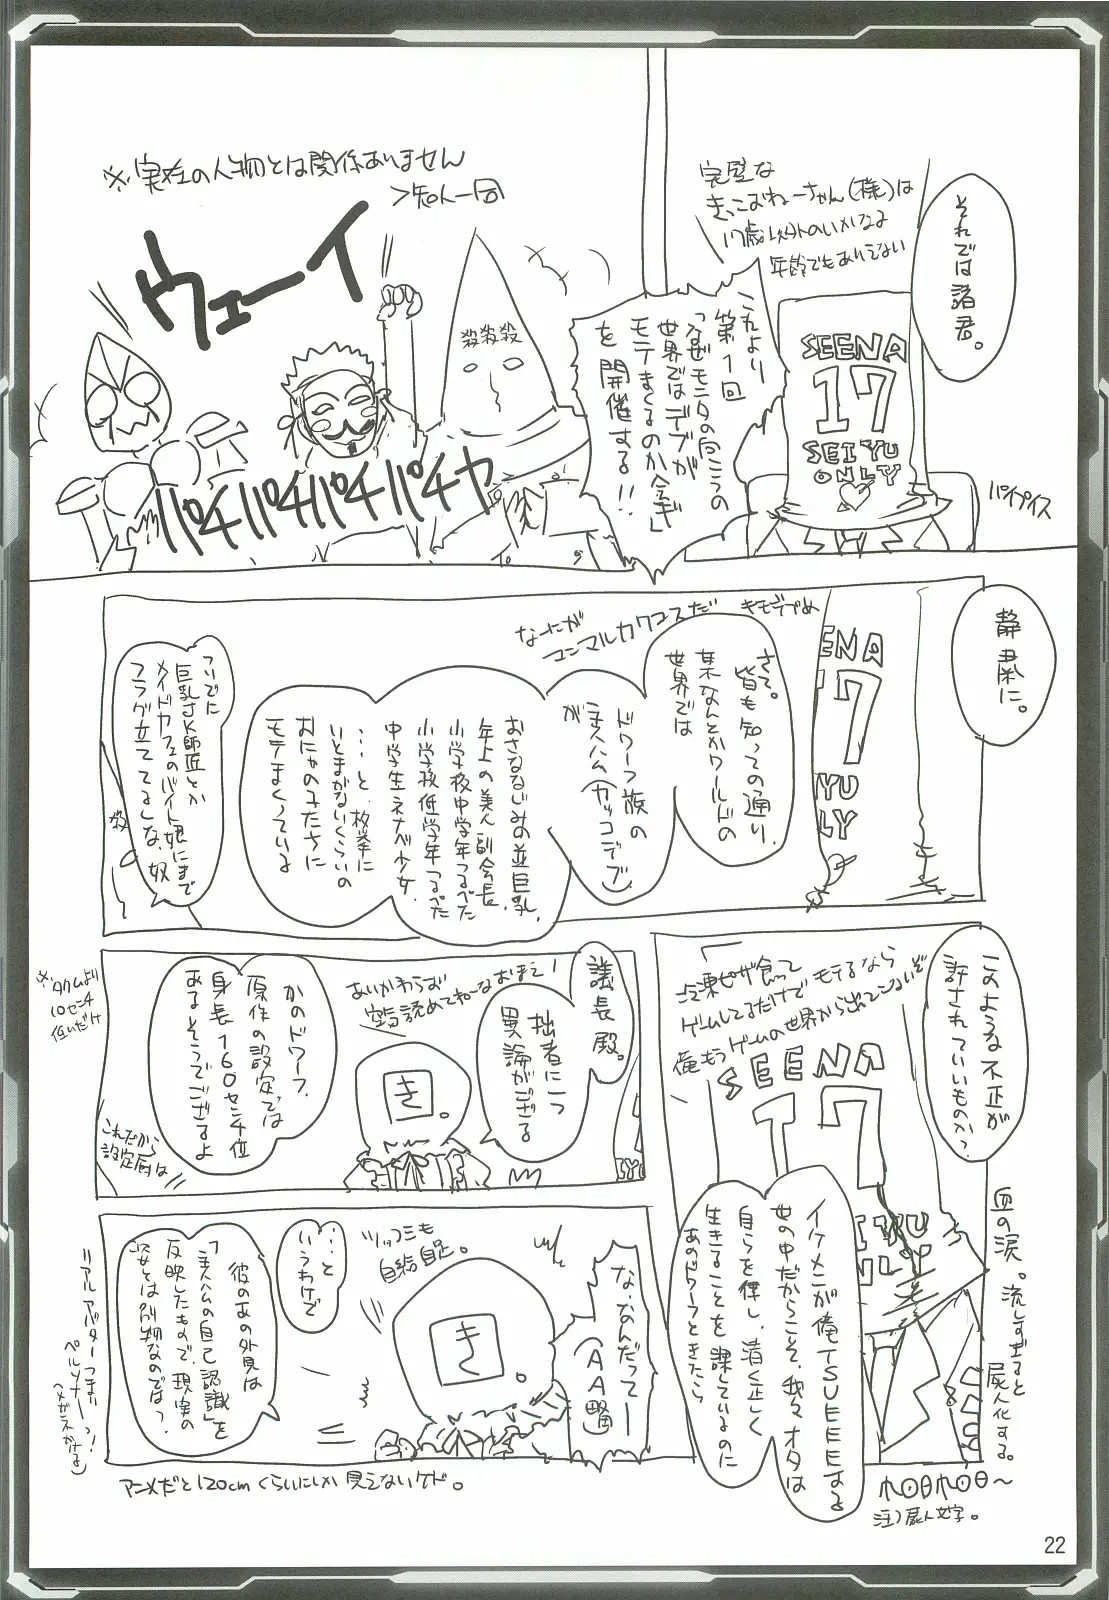 それでは諸君。
完璧な
きっこおねーちゃん(様)は
17歳以外のいかなる
年齢でもありえない
SEENA
17
SEIYU
ONLY
パイプイス
これより
第1回
「なぜモニタの向こうの
世界ではデブが
モテまくるのか会議」
を開催する!!
殺殺殺
※実在の人物とは関係ありません
>知人一同
ウェーイ
パチパチパチパチャ
静粛に。
キモデブめ
ENA
17
IYU
LY
さて。
皆も知っての通り、
某なんとかワールドの
世界では
なーにが
コンマルカワコスだ
ドワーフ族の
主人公(カッコデブ)
が
おさななじみの並巨乳、
年上の美人副会長、
小学校中学年つるぺた
小学校低学年つるぺた
中学生ネナベ少女、
・・・・と、枚挙に
いとまがないくらいの
おにゃのこたちに
モテまくっているよ
ついでに
巨乳JK師匠とか
メイドカフェのバイト娘にまで
フラグ立ててるしな、奴
殺
このような不正が
許されていいものか?
冷凍ピザ食って
ゲームしてるだけでモテるなら
俺もうゲームの世界から出てこないぞ
SEENA
17
イケメンが俺TSUEEEする
世の中だからこそ、我々オタは
自らを律し、清く正しく
生きることを課しているのに
あのドワーフときたら
血の涙。流しすぎると
屍人化する。
注)屍人文字。
議長殿。
拙者に一つ
異論がござる
あいかわらず
空気読めてねーなおまえ!
き。
かのドワーフ、
原作の設定では
身長160センチ位
あるそうでござるよ
※タクムより
10センチ
低いだけ
これだから
設定厨は
な、なんだってー
(AA略)
ツッコミも
自給自足。
き。
・・・・と
いうわけで
彼のあの外見は
「主人公の自己認識」を
反映したもので、現実の
姿とは別物なのでは?
リアルアバターつまり
ペルソナーっ!
(メガネが出る)
アニメだと120cmくらいにしか見えないケド。
22